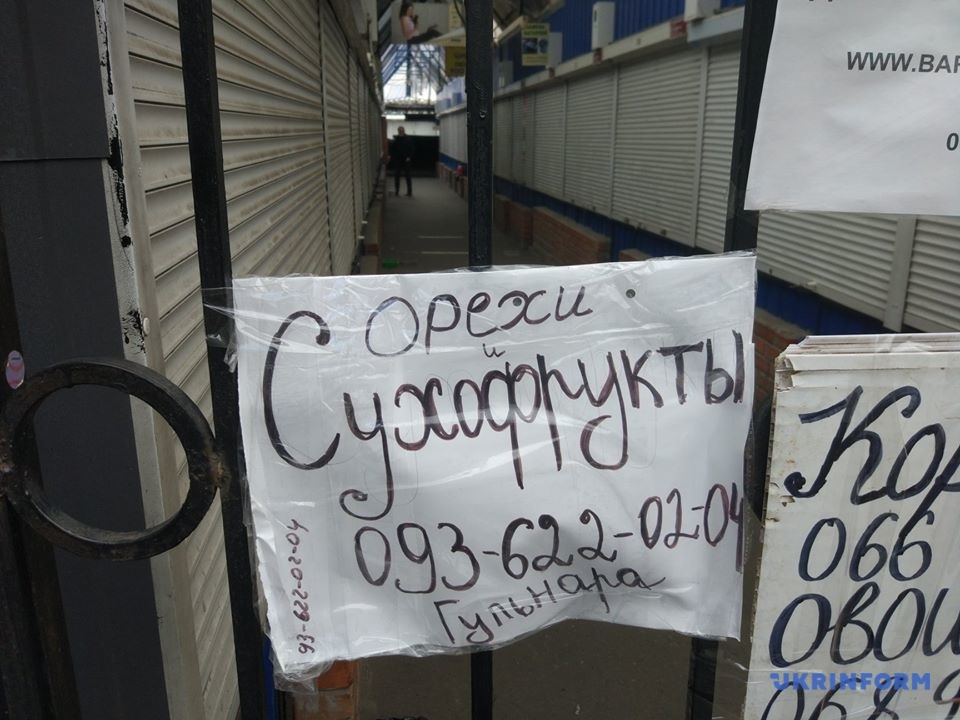 WWW.BAR
0
Орехи
и
Сухофрукты
093-622-02-04
Гульнара
93-622-02-04
Кор
066
ОВОЩ
068 9
UKRINFORM